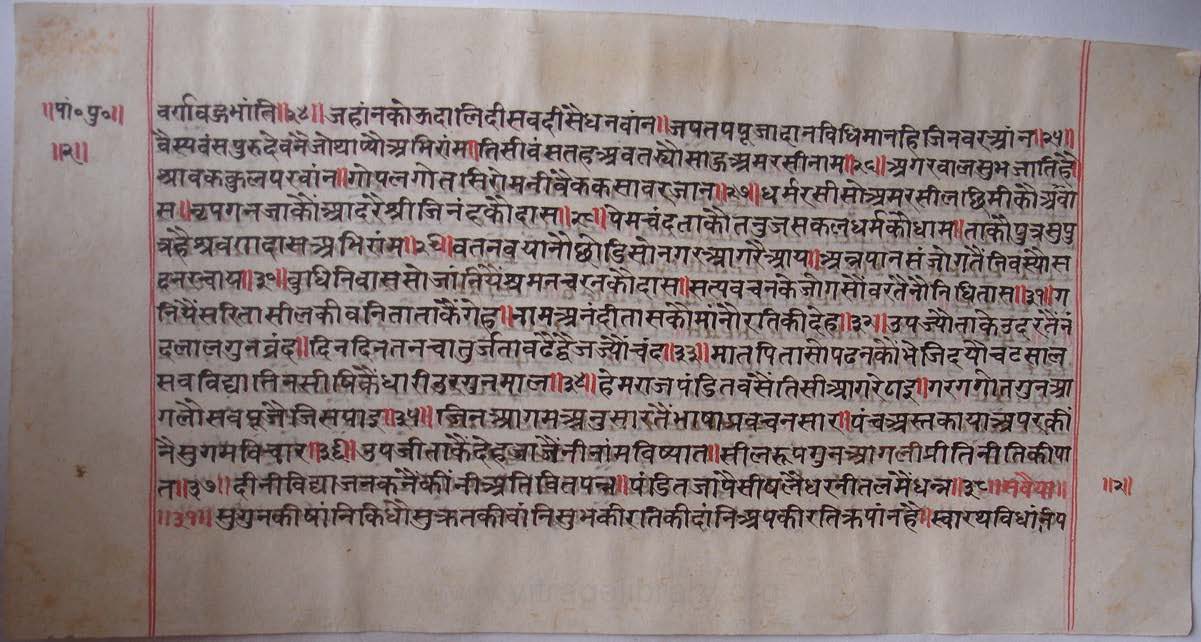 ॥पां॰पु॰॥
॥२॥
वर्गावज्रभांति॥२४॥ जहांनकोऊदालिदीसवदीसैधनवांन॥जपतपपूजादानविधिमानहिजिनवरआंन॥२५॥
वैस्यवंसपुरुदेवनैंजोथाप्यौअभिरांम॥तिसीवंसतहअवतर्यौसाऊअमरसीनाम॥२६॥ अगरवालसुभजातिहै
श्रावककुलपरवांन॥गोपलगोतसिरोमनीवैककसावरजान॥२७॥धर्मरसीसोअमरसीलछिमीकौअंवा
स॥नृपगनजाकौंआदरैश्रीजिनंदकौदास॥२८॥पेमचंदताकौतनुजसकलधर्मकौधाम॥ताकौपुत्रसुपु
त्रहैश्रवणदासअभिरांम॥२९॥वतनवयानौंछोडिसोनगरआगरैआय॥अन्नपानसंजोगतैंनिवस्यौस
दनरचाय॥३०॥वुधिनिवाससोजांनियेंश्रमनचरनकौदास॥सत्यवचनकेजोगसौंवरतैनोनिधितास॥३१॥ग
नियैसरितासीलकीवनिताताकैंगेह॥नामअनंदीतासकौंमांनौरतिकीदेह॥३२॥उपज्यौताकेउदरतैंनं
दलालगुनव्रंद॥दिनदिनतनचातुर्जतावढैद्वैजज्यौंचंद॥३३॥मातपितासोपढनकौंभेजिदयौचटसाल
सवविद्यातिनसीषिकैंधारीउरगुनमाल॥३४॥हेमराजपंडितवसैंतिसीआगरेठाइ॥गरगगोतगुनआ
गलौसवपूजैंजिसपाइ॥३५॥ जिनआगमअनुसारतैंभाषाप्रवचनसार॥पंचअस्तकायाअपरकीं
नैसुगमविचार॥३६॥उपजीताकैंदेहजाजैंनीनांमविष्यात॥सीलरूपगुनआगलीप्रीतिनीतिकीपा
त॥३७॥दीनीविद्याजनकनैंकींनीअतिवितपन्न॥पंडितजांपैसीषलैंधरनीतलमैंधन्न॥३८॥सवैया॥
॥३१॥ सुगुनकीषांनिकिधौंसुक्रतकीवांनिसुभकीरतिकीदांनिअपकीरतिक्रपांनहै॥स्वारथविधांनिप
॥२॥